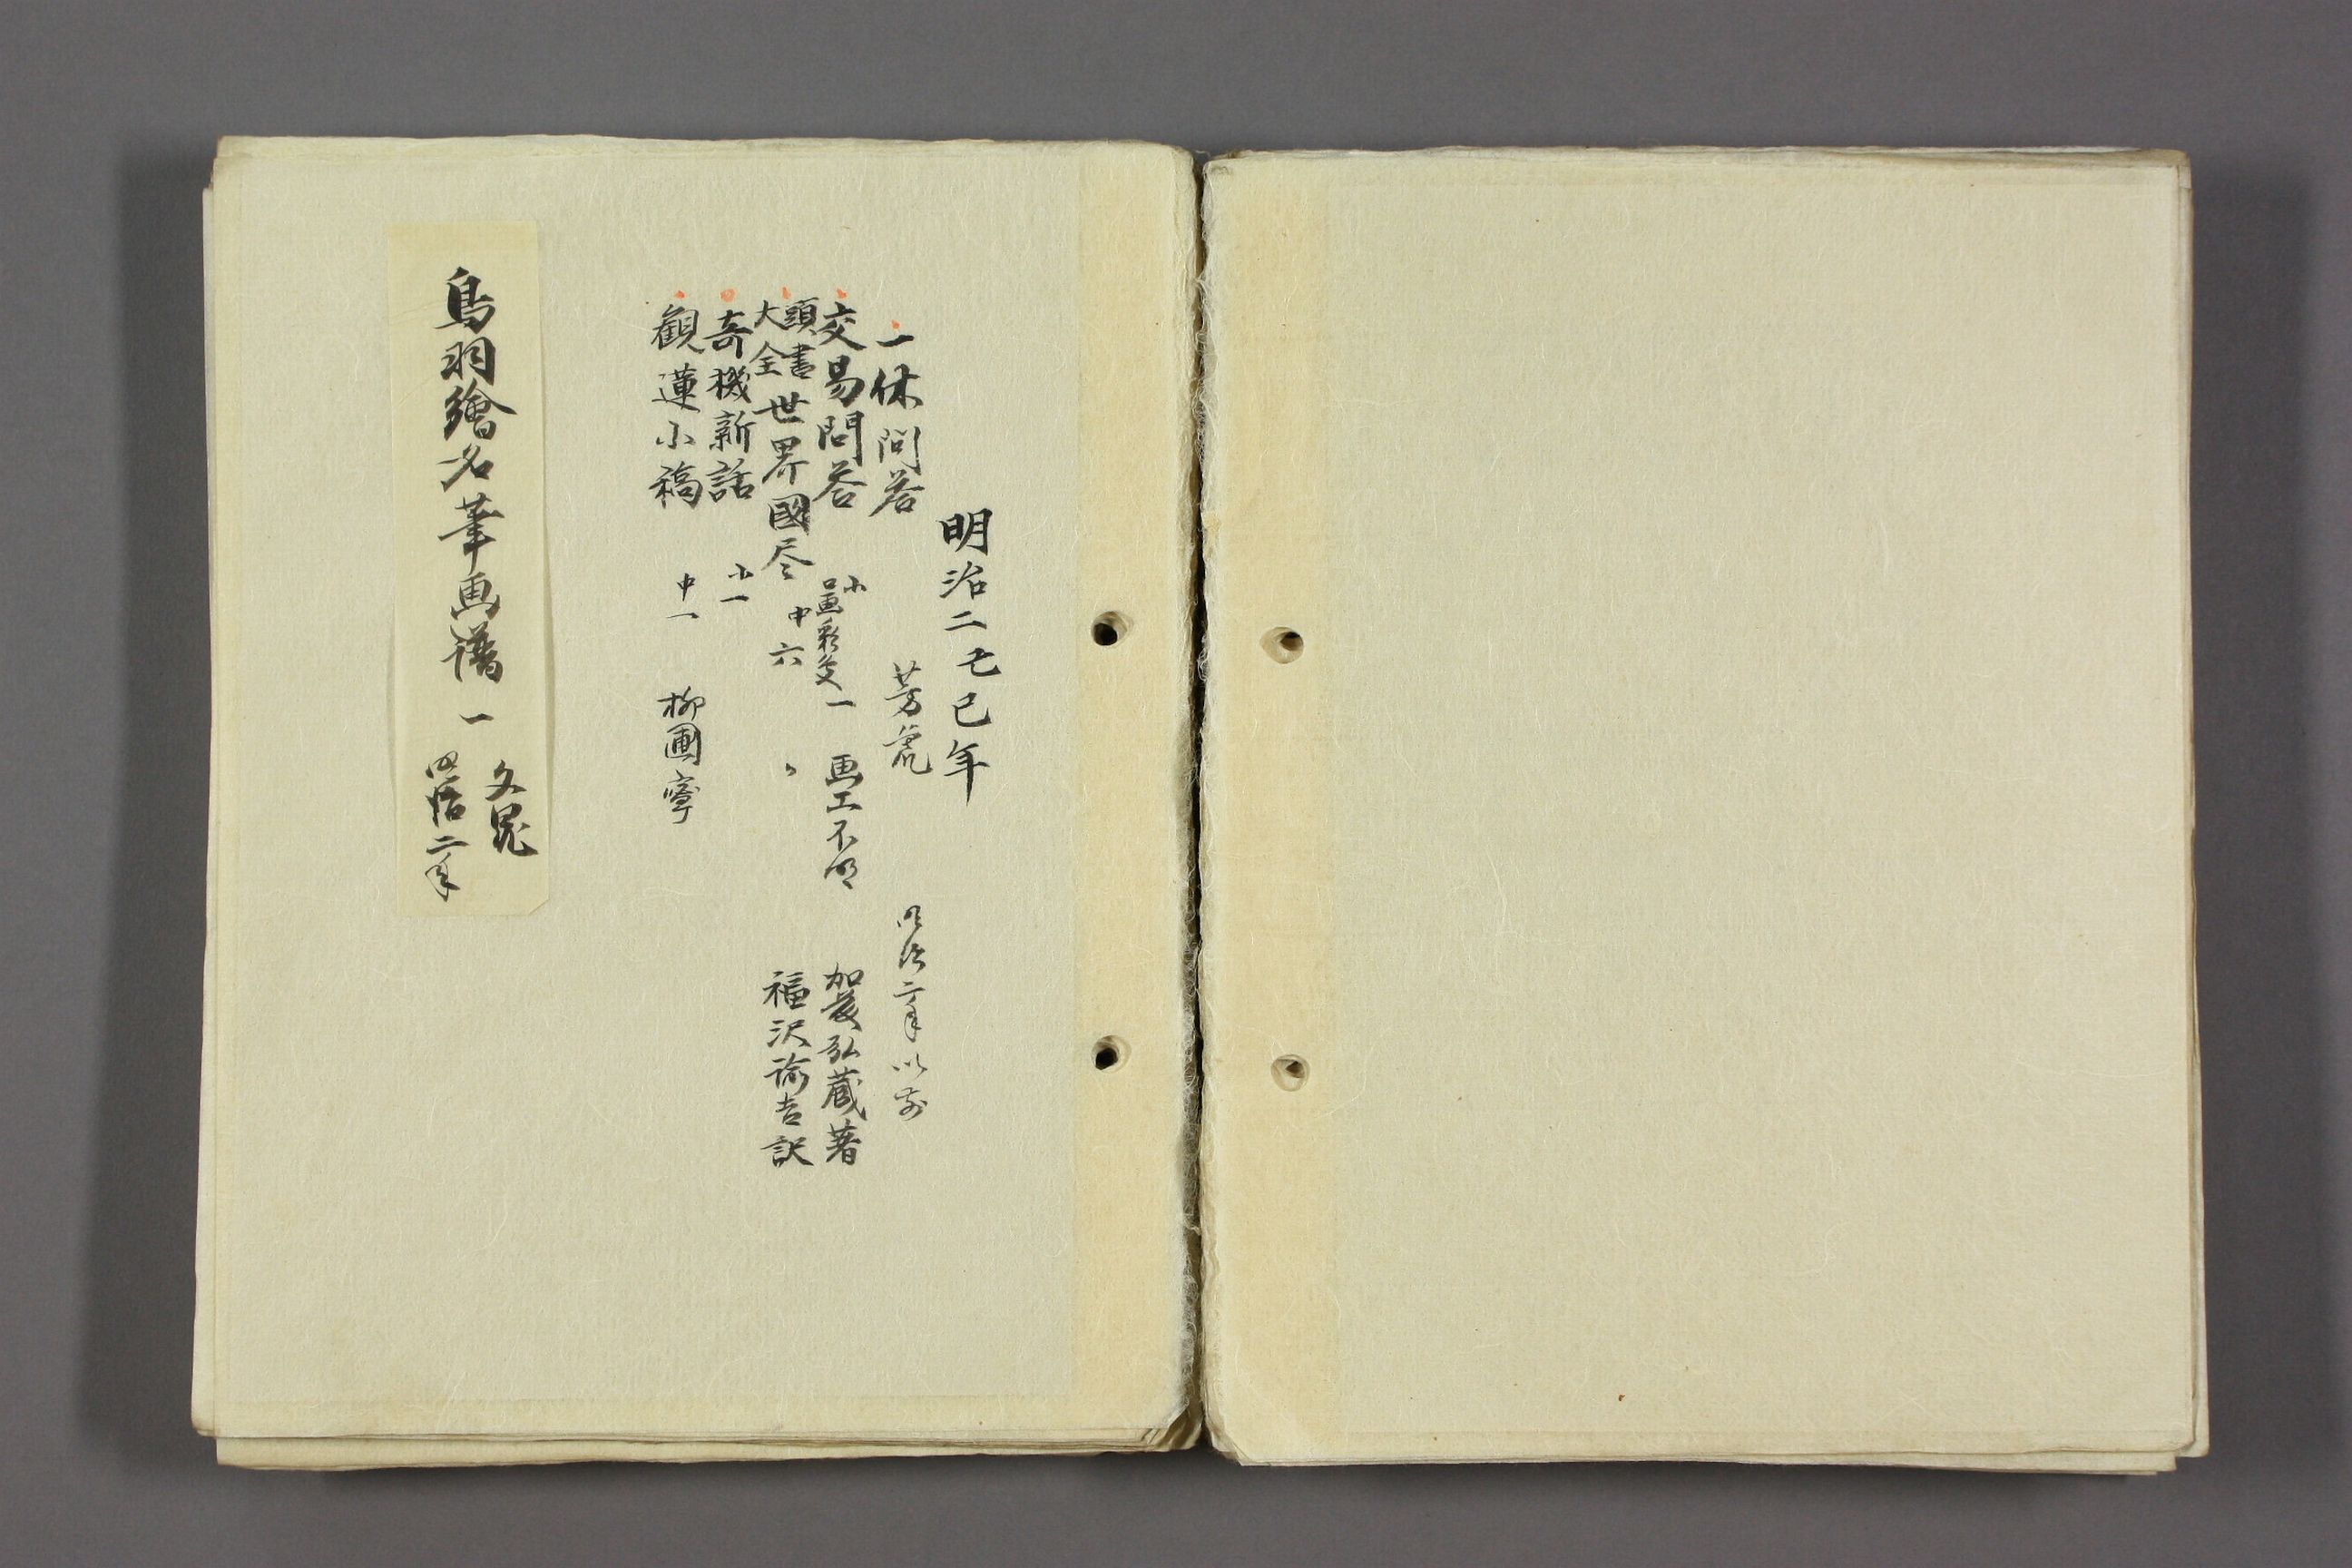 明治二七巳年
一休問答 芳虎 明治二年以前
交易問答 小 一 画工不明 加藤弘蔵著
頭書大全 世界國尽 中六 〃 福沢諭吉訳
奇機新話 小一
観蓮小稿 中一 柳圃寧
鳥羽繪名筆画譜 一 文晁 明治二年